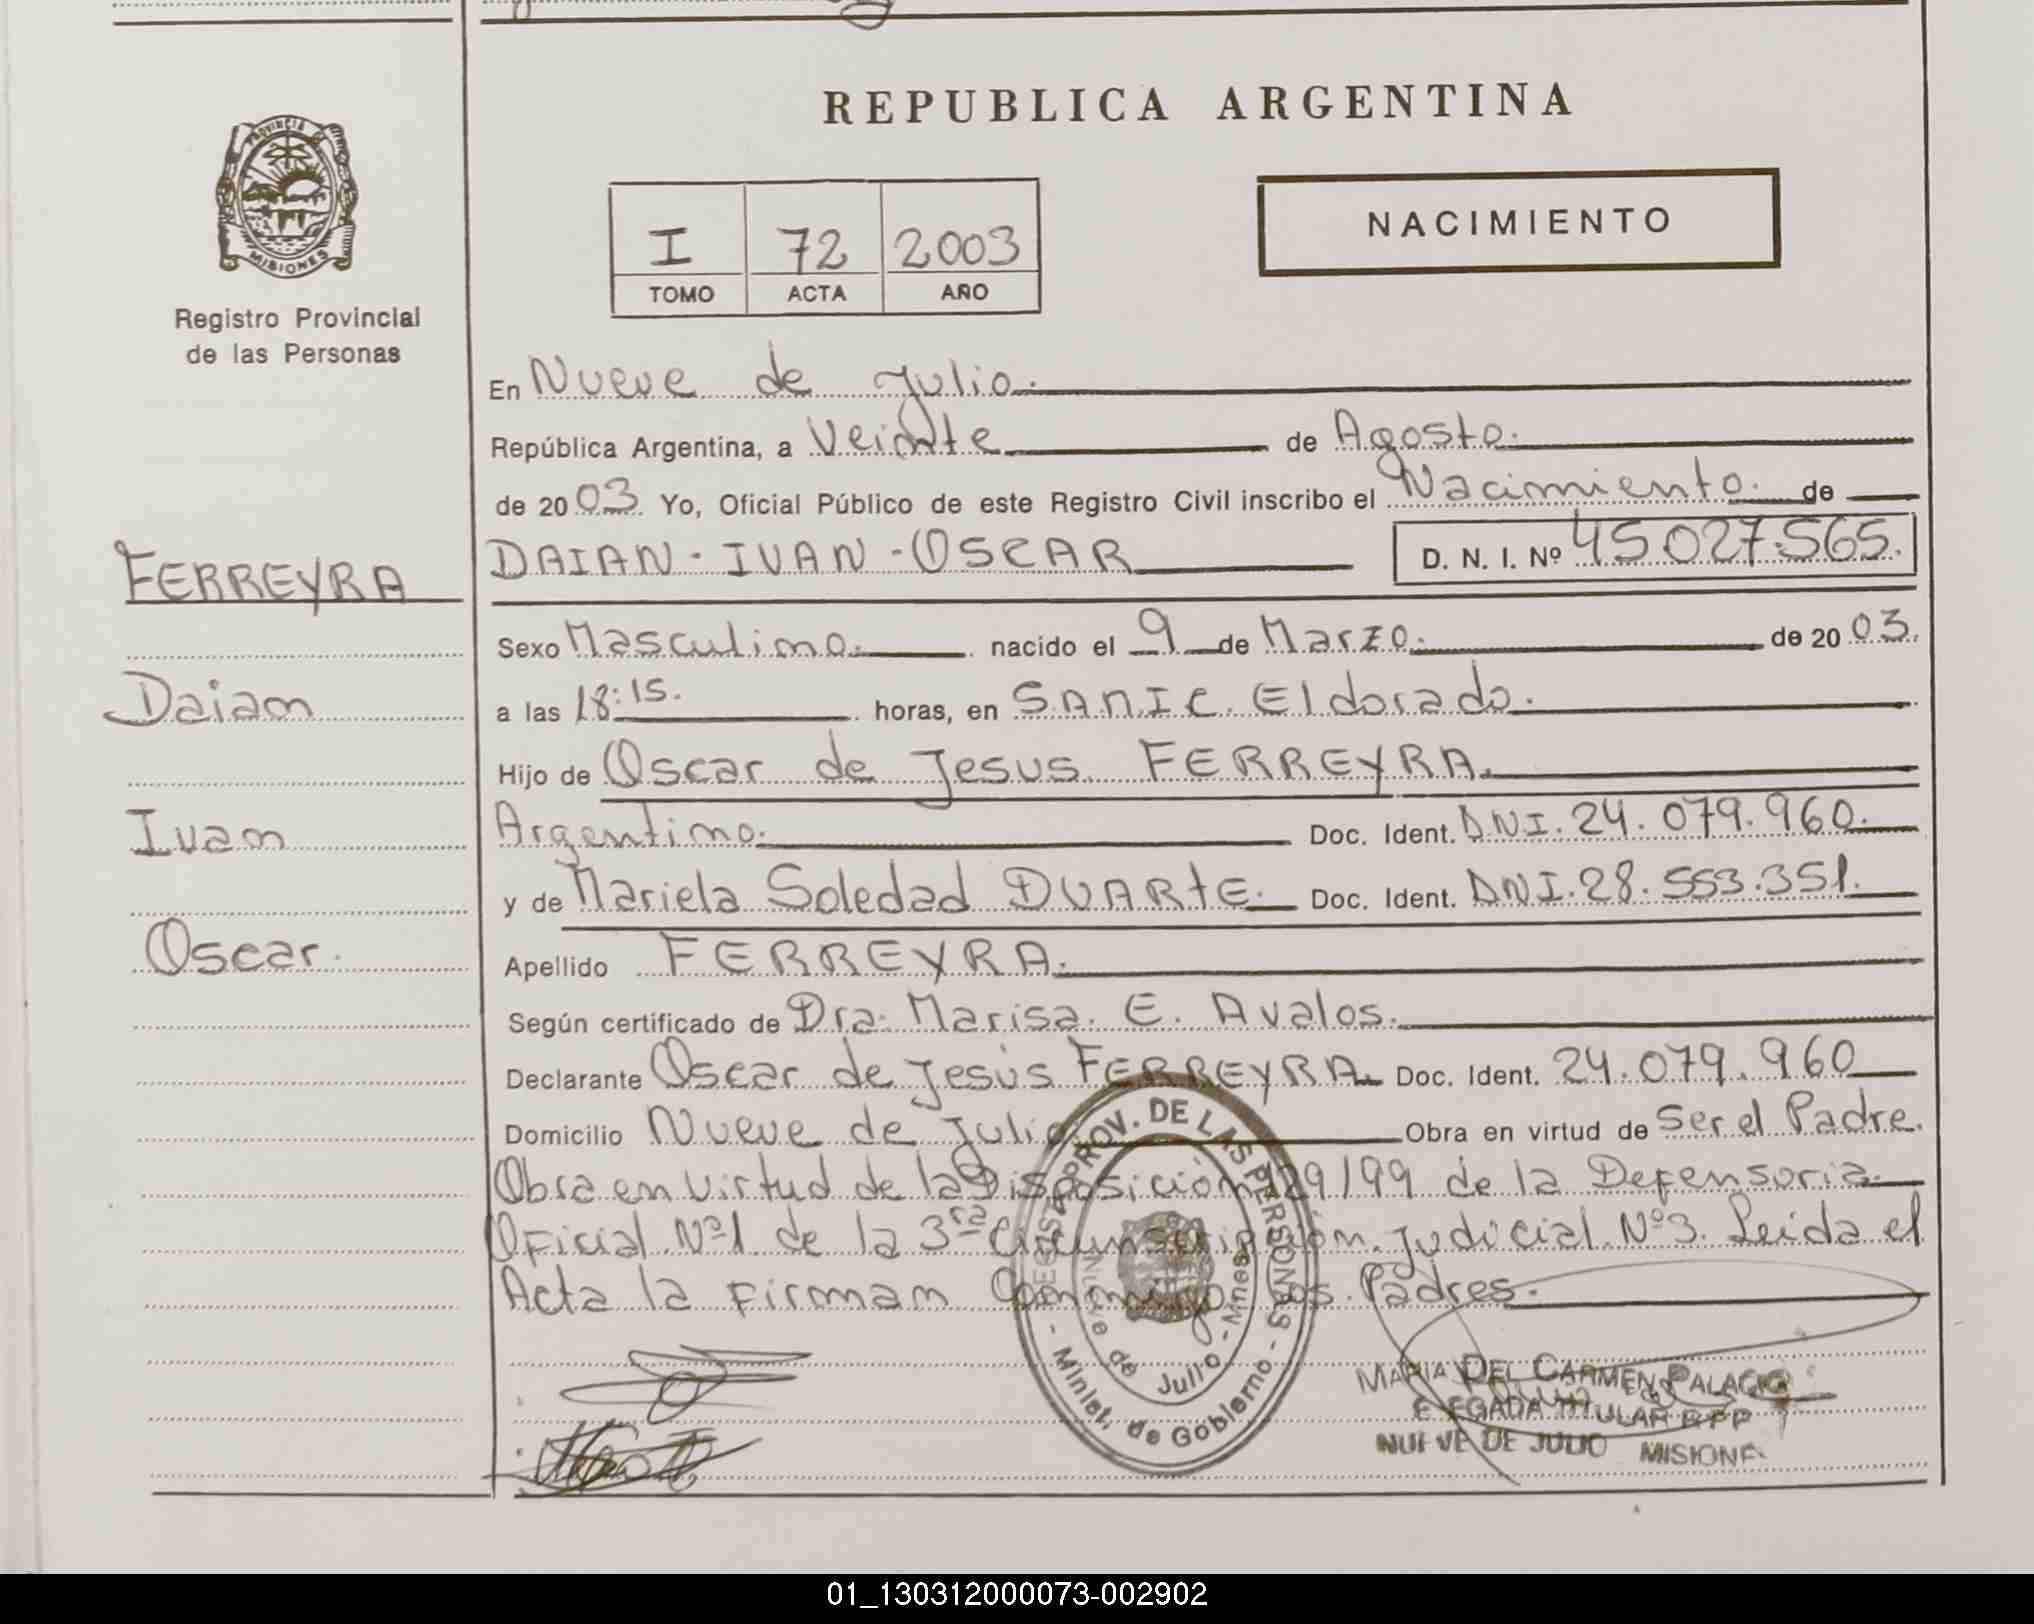 REPUBLICA ARGENTINA
PROVINCIA
MISIONES
Registro Provincial
de las Personas
I 72 2003
TOMO ACTA AÑO
NACIMIENTO
En Nueve de Julio.
República Argentina, a Veinte de Agosto.
de 2003 Yo, Oficial Público de este Registro Civil inscribo el Nacimiento. de
FERREYRA
DAIAN - IVAN - OSCAR D. N. I. Nº 45.027.565.
Sexo Masculino. nacido el 9 de Marzo. de 2003.
Daian
a las 18:15. horas, en SANIC. Eldorado.
Hijo de Oscar de Jesus FERREYRA.
Ivan
Argentino. Doc. Ident. DNI. 24.079.960.
y de Mariela Soledad DUARTE. Doc. Ident. DNI. 28.553.351.
Oscar.
Apellido FERREYRA.
Según certificado de Dra. Marisa. E. Avalos.
Declarante Oscar de Jesús FERREYRA. Doc. Ident. 24.079.960
Domicilio Nueve de Julio Obra en virtud de Ser el Padre.
Obra en virtud de la Disposición 129/99 de la Defensoria.
Oficial Nº1 de la 3ra Circunscripción Judicial Nº3. Leida el
Acta la firman Conmigo los Padres.
REGIST. PROV. DE LAS PERSONAS
- Minist. de Gobierno -
Nueve de Julio - Mnes.
MARIA DEL CARMEN PALACIO
TITULAR R P P
NUEVE DE JULIO MISIONE
01_130312000073-002902